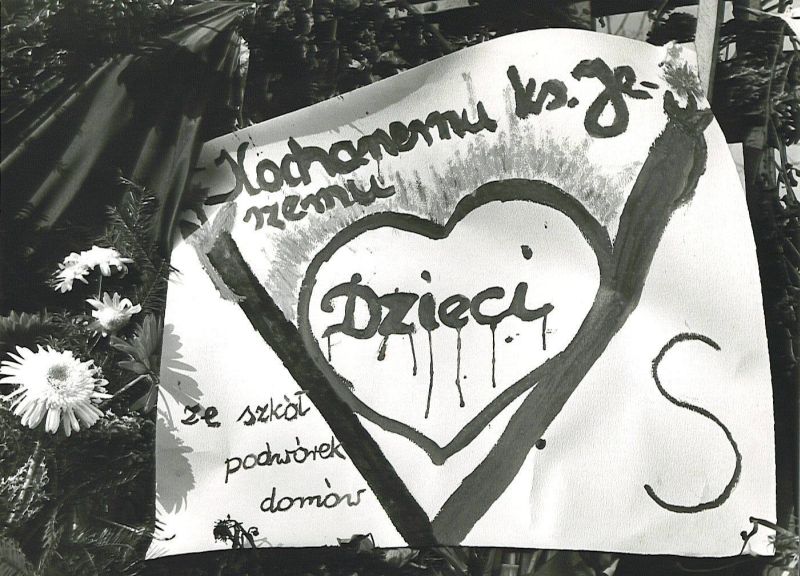 Kochanemu ks. Je-
rzemu
Dzieci
ze szkół
podwórek
domów
S